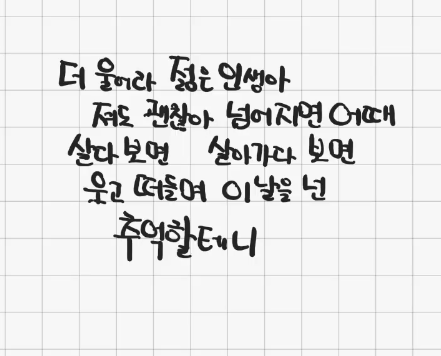 더 울어라 젊은 인생아
져도 괜찮아 넘어지면 어때
살다 보면 살아가다 보면
웃고 떠들며 이날을 넌
추억할테니